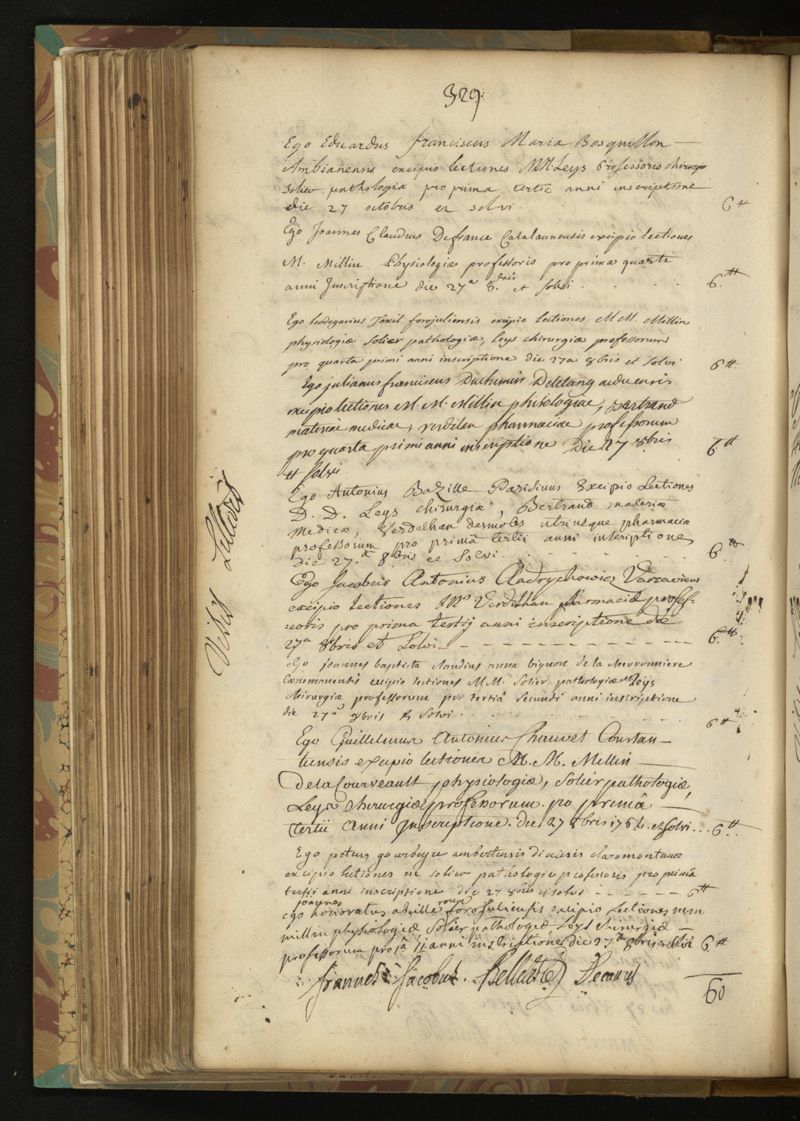 329
Ego Eduardus franciscus Maria Bosquillon
Ambianensis excipio lectiones MM Leys Professoris chirurgiæ
Solier pathologiæ pro prima tertii anni inscriptione
die 27 octobris et solvi.
6 ₶
Ego Joannes Claudius Defrance Catalaunensis excipio lectiones
M. Millin Physiologiæ professoris pro prima quarti
anni Inscriptione die 27a 8bris et solvi
6 ₶
Ego leodegarius Taxil forojuliensis excipio lectiones M M. Millin
physiologiæ Solier pathologiæ, leys chirurgiæ professorum
pro quarta primi anni inscriptione die 27a 8bris et solvi
6 ₶
Ego julianus franciscus Duchemin Deletang
excipio lectiones M. M. Millin phisiologiae, Bertrand
materiae medicae, verdelhan pharmaciae professorum
pro quarta primi anni inscriptione Die 27 8bris
et solvi
6 ₶
Ego Antonius Bazille Parisinus Excipio Lectiones
D. D. Leys chirurgiæ, Bertrand materiæ
Medicæ, Verdelhan desmoles utriusque pharmaciæ
professorum pro primâ tertii anni inscriptione
die 27.a 8bris et Solvi
6 ₶
Ego Jacobus Antonius Andrychowicz Varsaviensis
excipio lectiones Mri Verdelhan pharmaciæ profes-
soris pro prima tertij anni inscriptione die
27a 8bris et Solvi
6 ₶
Ego joannes baptista claudius anna bignon de la
Cœnomanensis excipio lectiones M.M. Solier pathologiæ Leys
chirurgiæ professorum pro tertiâ Secundi anni inscriptione
die 27a 8bris & Solvi
6 ₶
Ego Guillelmus Antonius Chauvet Constan-
tiensis excipio lectiones M. M. Mellin
de la Courveault physiologiæ, Solier pathologiæ,
Leys chirurgiæ professorum pro primâ
tertii anni inscriptione. die 27 8bris 176. et solvi
6 ₶
Ego petrus ambertensis diœcesis claromontanæ
excipio lectiones m solier pathologiæ professoris pro primâ
tertii anni inscriptione die 27 8bris et solvi
6 ₶
joannes
ego honoratus forojuliensis excipio Lectiones mm
millin physiologiæ Solier pathologiæ Leys chirurgiæ
professorum pro 1a anni inscriptione die 27a 8bris et solvi
6 ₶
franciscus Jacobus Bellelête Decanus
60